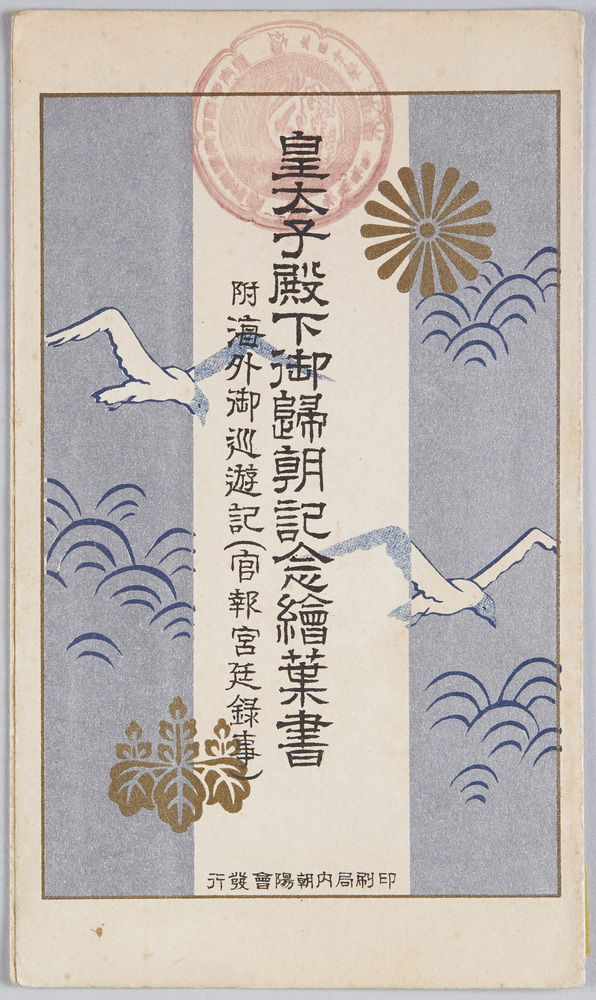 皇太子殿下御歸朝記念繪葉書
附海外御巡遊記(官報宮廷錄事)
印刷局内朝陽會發行